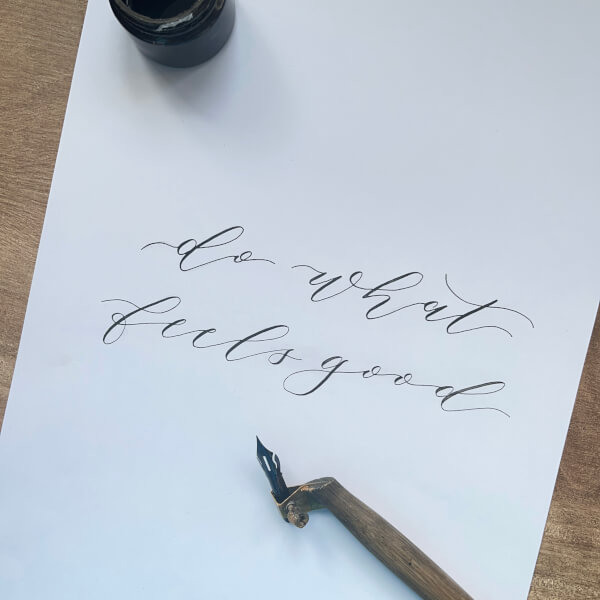 do what
feels good